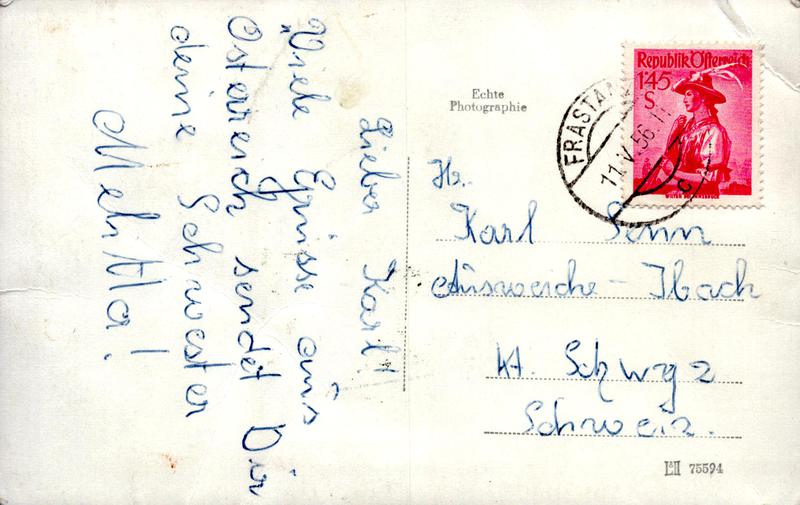 Lieber Karl!
"Viele Grüsse aus
Österreich sendet Dir
deine Schwester
Echte
Photographie
Republik Österreich
1'45
S
FRASTAN
11.V.56.11
c
Hr.
Karl Senn
Ausweiche - Ibach
Kt. Schwyz
Schweiz.
75594